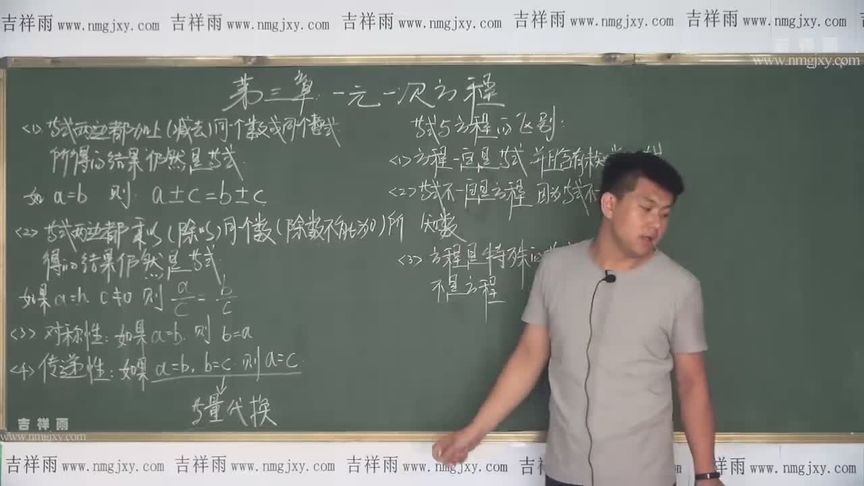 吉祥雨 www.nmgjxy.com 吉祥雨 www.nmgjxy.com 吉祥雨 www.nmgjxy.com 吉祥雨 www.nmgjxy.com 吉祥雨 www.nmgjxy.com
www.nmgjxy.com
第三章 一元一次方程
<1> 等式两边都加上(减去)同一个数或同一个整式
所得的结果仍然是等式.
如 a=b 则 a±c=b±c
<2> 等式两边都乘以(除以)同一个数(除数不能为0)所
得的结果仍然是等式
如果 a=b c≠0 则 a/c = b/c
<3> 对称性: 如果 a=b. 则 b=a
<4> 传递性: 如果 a=b. b=c 则 a=c
等量代换
等式与方程的区别:
<1> 方程一定是等式 并且含有
<2> 等式不一定是方程 因为等式不一
知数
<3> 方程是特殊的等
不是方程
吉祥雨
www.nmgjxy.com
吉祥雨 www.nmgjxy.com 吉祥雨 www.nmgjxy.com 吉祥雨 www.nmgjxy.com 吉 吉祥雨 www.nmgjxy.com